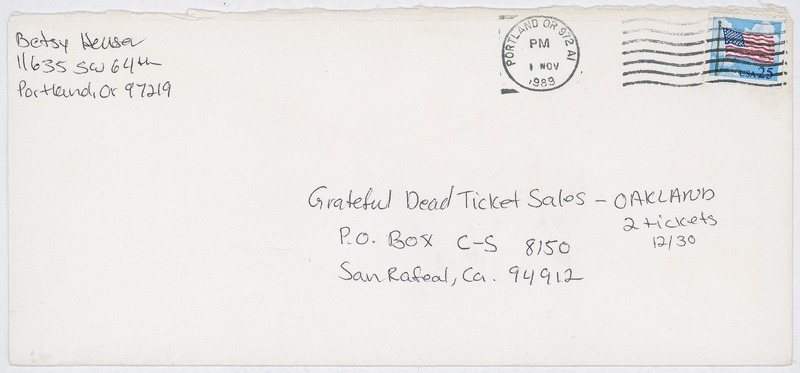 Betsy Heuser
11635 SW 64th
Portland, Or 97219
PORTLAND OR 972 A1
PM
1 NOV
1989
USA 25
Grateful Dead Ticket Sales – OAKLAND
2 tickets
12/30
P.O. Box C-S 8150
San Rafeal, Ca. 94912